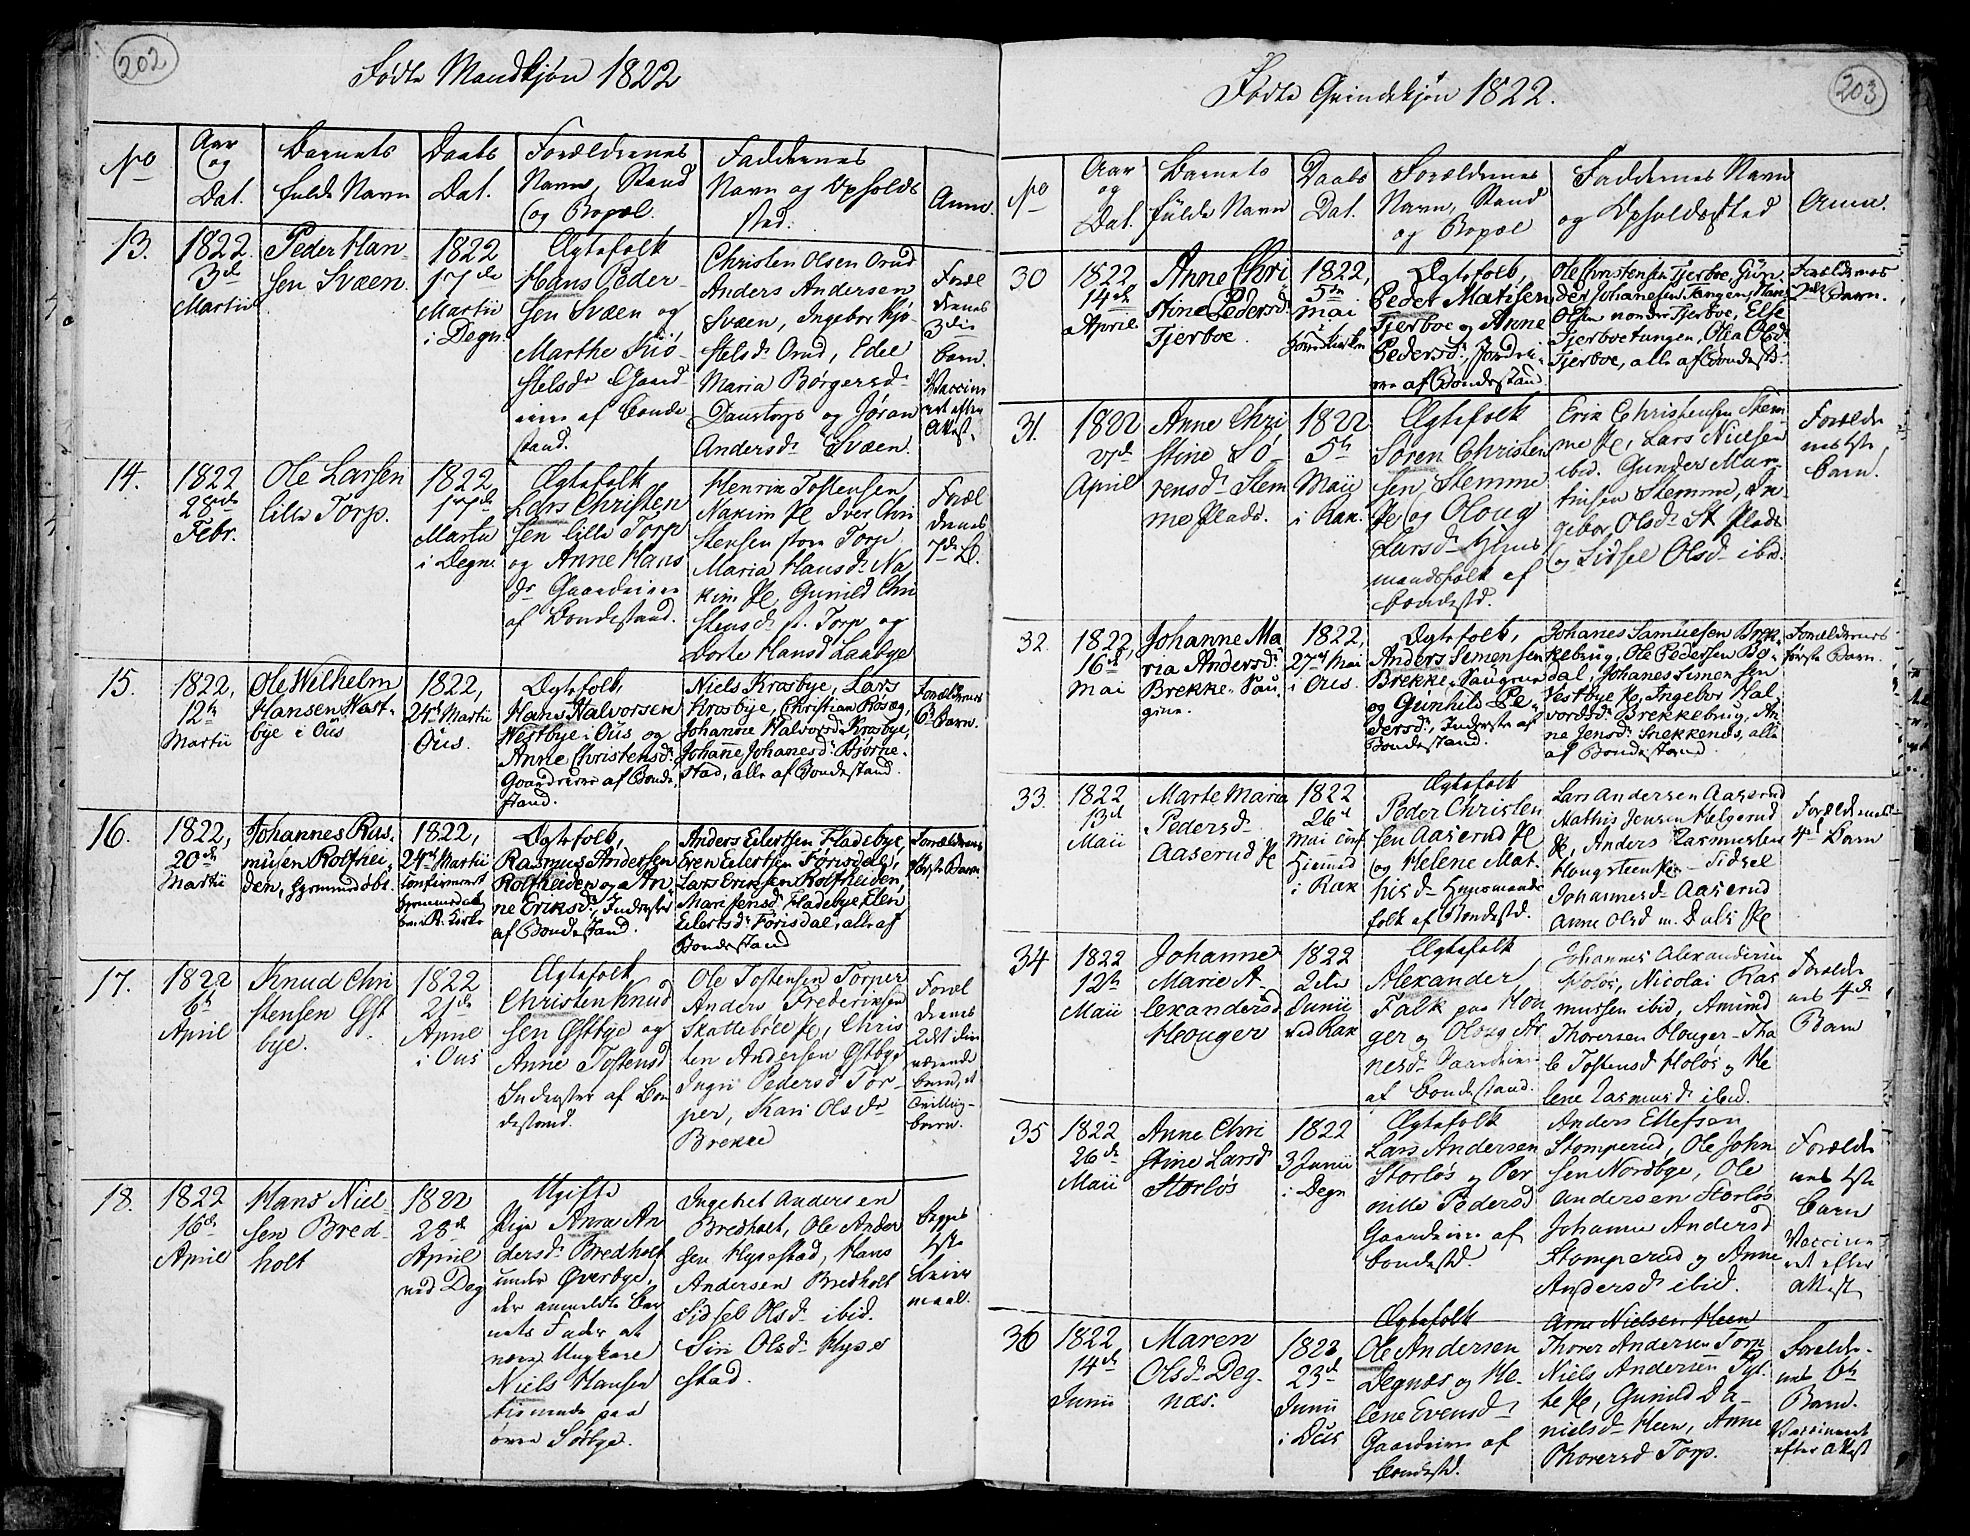 202
Fødte Mandkjøn 1822
No
Aar
og
Dat.
Barnets
fulde Navn
Daabs
Dat.
Forældrenes
Navn, Stand
og Bopæl.
Faddernes
Navn og Opholds
sted.
Anm.
13.
1822
3de
Martii
Peder Han-
sen Svæen.
1822
17de
Martii
i Degn.
Ægtefolk
Hans Peder-
sen Svæen og
Marthe Kiø-
stelsdr Gaard
mænd af Bonde
stand.
Christen Olsen Orud
Anders Andersen
Svæen, Ingebor Kjø-
stelsd. Orud, Edee
Maria Børgersd.
Danstorp og Jøran
Andersd. Svæen.
Foræl
drenes
3die
Barn.
Vaccine-
ret efter
Attest.
14.
1822
28de
Febr.
Ole Larsen
lille Torp.
1822
17de
Martii
i Degn.
Ægtefolk
Lars Christen
sen lille Torp
og Anne Hans
dr Gaardeiere
af Bondestand.
Henrik Tostensen
Nakim Pl. Iver Chri
stensen store Torp
Maria Hansd. Na-
kim Pl. Gunild Chri
stensd. st. Torp og
Dorte Hansd Laabye
Foræl
drenes
7de B.
15.
1822,
12te
Martii
Ole Wilhelm
Hansen Vast-
bye i Øus
1822,
24de Martii
i
Øus.
Ægtefolk,
Hans Halvorsen
Westbye i Øus og
Anne Christensd.
Gaardeiere af Bonde
stand.
Niels Krosbye, Lars
Krosbye, Christian Rosæg,
Johanne Halvorsd. Krosbye,
Johanne Johanesd. Bjørne-
stad, alle af Bondestand.
Forældrenes
6te Barn.
16.
1822,
20de
Martii
Johannes Ras-
musen Rolfhei-
den, hjemmedøbt.
1822,
24de Martii
confirmeret
hjemmedaab
Kirke
Ægtefolk,
Rasmus Andersen
Rolfheiden og An-
ne Eriksd., Inderster
af Bondestand.
Anders Eilertsen Fladebye,
Even Eilertsen Forisdal,
Lars Eriksen Rolfheiden,
Mari Jensd. Fladebye, Elen
Eilertsd. Forisdal, alle af
Bondestand
Forældrenes
første Barn
17.
1822
6te
April
Knud Chri
stensen Øst
bye.
1822
21de
April
i Øus
Ægtefolk
Christen Knud
sen Østbye og
Anne Tostensd
Inderster af Bon
destand.
Ole Tostensen Torper
Anders Frederiksen
Skattebøl Pl, Chris
ten Andersen Østbye
Ingri Pedersd Tor-
per, Kari Olsdr
Brekke
Foræl
drenes
2det
nærende
Barn, et
Tvilling-
barn.
18.
1822
16de
April
Hans Niel
sen Bred-
holt
1822
28de
April
ved Deg
Ugifte
Pige Anna An
dersd. Bredholt
under Øverbye,
der anmeldte Bar
nets Fader at
være Ungkarl
Niels Hansen
tienende paa
øvre Sørbye.
Ingebet Andersen
Bredholt, Ole Ander
sen Hysestad, Hans
Andersen Bredholt
Sidsel Olsd. ibid.
Siri Olsd. Hyse
stad.
Begges
1ste
Leier
maal.
203
Fødte Qvindekjøn 1822.
No
Aar
og
Dat.
Barnets
fulde Navn
Daabs
Dat.
Forældrenes
Navn, Stand
og Bopæl
Faddernes Navn
og Opholdssted
Anm.
30
1822
14de
April
Anne Chri
stine Pedersd.
Tjerboe.
1822,
5te
Mai
i
Kirken
Ægtefolk,
Peder Matisen
Tjerboe og Anne
Pedersd., Jordei-
ere af Bondestand
Ole Christensen Tjerboe, Gun
der Johanesen Tangen, Hans
Olsen nordre Tjerboe, Else
Tjerboetangen, Olea Olsd.
Tjerboe, alle af Bondest.
Forældrenes
2det Barn.
31.
1822
April
Anne Chri
stine Sø-
rensd. Stem
me Plads.
1822
5te
Maii
i Rak.
Ægtefolk
Søren Christen
sen Stemme
Pl. og Oloug
Larsd. Huus
mandsfolk af
Bondestd.
Erik Christensen Stem
me Pl, Lars Nielsen
ibid. Gunder Mar-
tinsen Stemme, In-
gebor Olsd. St. Plads
og Sidsel Olsd. ibd.
Foreldre
nes 1ste
Barn.
32.
1822,
16de
Mai
Johanne Ma
ria Andersd.
Brekke-Sau
giere.
1822,
27de Mai
i Øus.
Ægtefolk,
Anders Simensen
Brekke-Saugrud
og Gunhild Pe-
dersd., Inderster af
Bondestand.
Johanes Samuelsen Brek
kebrug, Ole Pedersen Bø-
dal, Johanes Simensen
Vestbye Pl, Ingebor Hal
vorsd. Brekkebrug, An
ne Jensd. Snekkenes, alle
af Bondestand
Forældrenes
første Barn.
33.
1822
13de
Maii
Marte Maria
Pedersd.
Aaserud Pl
1822
26de
Mai conf
Hjemmed
i Rak
Ægtefolk
Peder Christen
sen Aaserud Pl
og Helene Mat-
hisd. Huusmands
folk af Bondestd.
Lars Andersen Aaserud
Mathis Jensen Helgerud
Pl, Anders Rasmussen
Hougsteen Sidsel
Johannesd. Aaserud
Anne Olsd. Pl
Forældrenes
4de Barn
34
1822
12te
Maii
Johanne
Marie A-
lexandersd
Houger
1822
2den
Junii
ved Rak
Ægtefolk
Alexander
Falk paa Hou
ger og Oloug Ar
nesd. Gaardeiere
af Bondestand.
Johannes Alexandersen
Holøs, Nicolai Ras
mussen ibid, Amund
Thoresen Houger, Tha
le Tostensd Holøs og He
lene Rasmusd. ibid.
Forældre
nes 4de
Barn
35
1822
26de
Maii
Anne Chri
stine Larsd
Storløs
1822
3 Junii
i Degn
Ægtefolk
Lars Andersen
Storløs og Per
nille Pedersd
Gaardeiere af
Bondestd.
Anders Ellefsen
Stomperud, Ole John
sen Nordbye, Ole
Andersen Storløs
Johanne Andersd
Stomperud og Anne
Andersd. ibid.
Forældre
nes 1ste
Barn
Vaccine-
ret efter
attest
36
1822
14de
Junii
Maren
Olsd. Deg-
næs.
1822
23de
Junii
i Øus
Ægtefolk
Ole Andersen
Degnæs og He-
lene Evensd.
Gaardeiere af
Bondestd.
Arne Nielsen Heen
Thorer Andersen Torp
Niels Andersen
Pl, Gunild Da-
nielsd. Heen, Anne
Thorersd Torp.
Forældre-
nes 6te
Barn.
Vaccineret
efter Attest